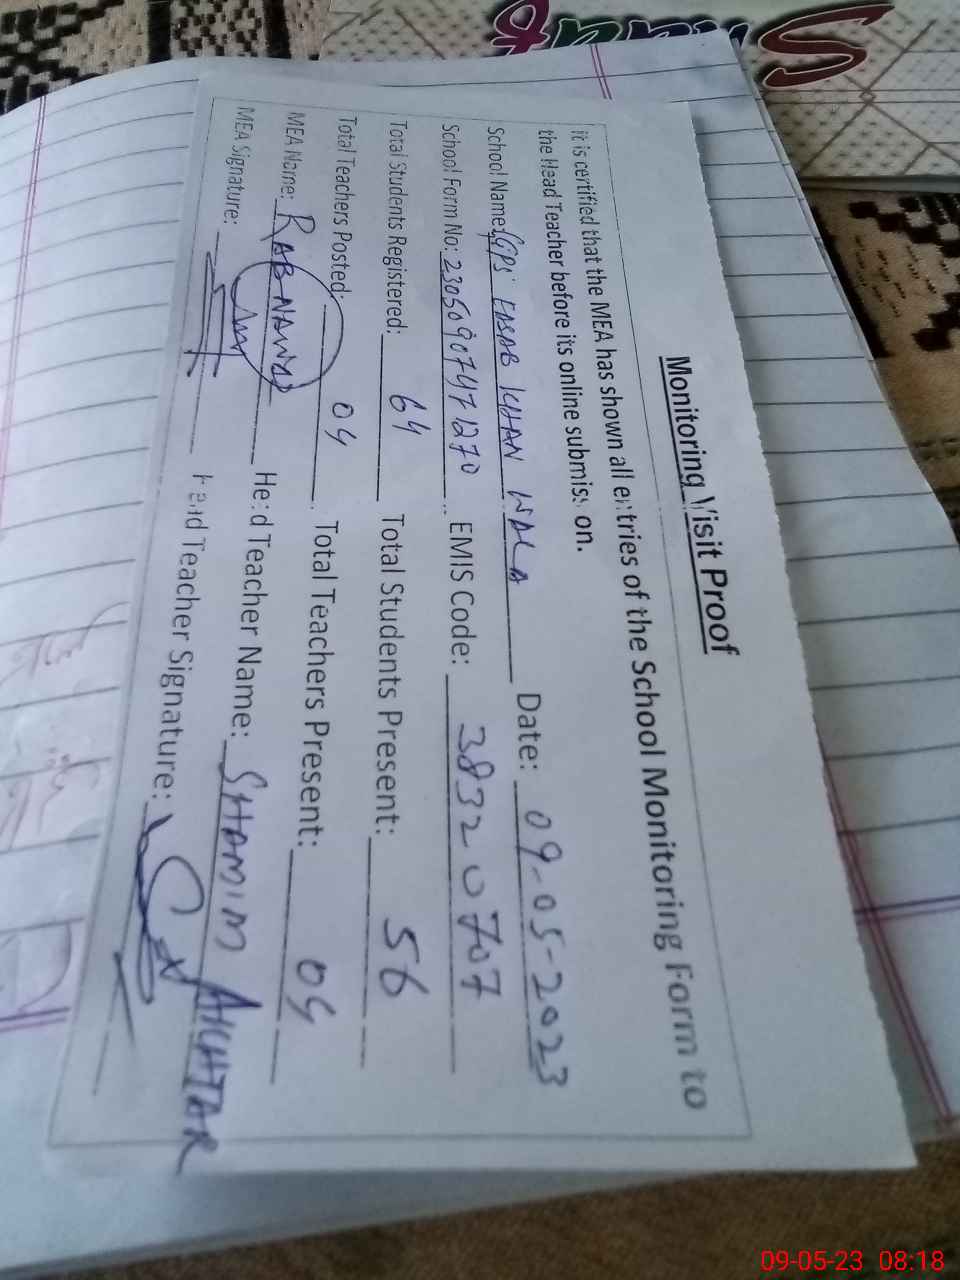 Monitoring Visit Proof
It is certified that the MEA has shown all entries of the School Monitoring Form to
the Head Teacher before its online submission.
School Name: GPS KHAN WALA Date: 09-05-2023
School Form No: 23050907471270 EMIS Code: 38320707
Total Students Registered: 64 Total Students Present: 56
Total Teachers Posted: 04 Total Teachers Present: 04
MEA Name: RAB NAWAZ Head Teacher Name: SHAMIM AKHTAR
MEA Signature: Head Teacher Signature:
09-05-23 08:18